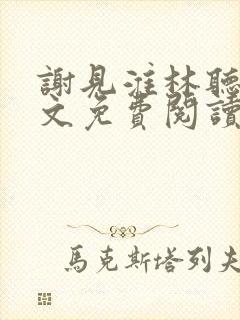 謝見淮林聽
文免費閱讀
馬克斯塔列夫